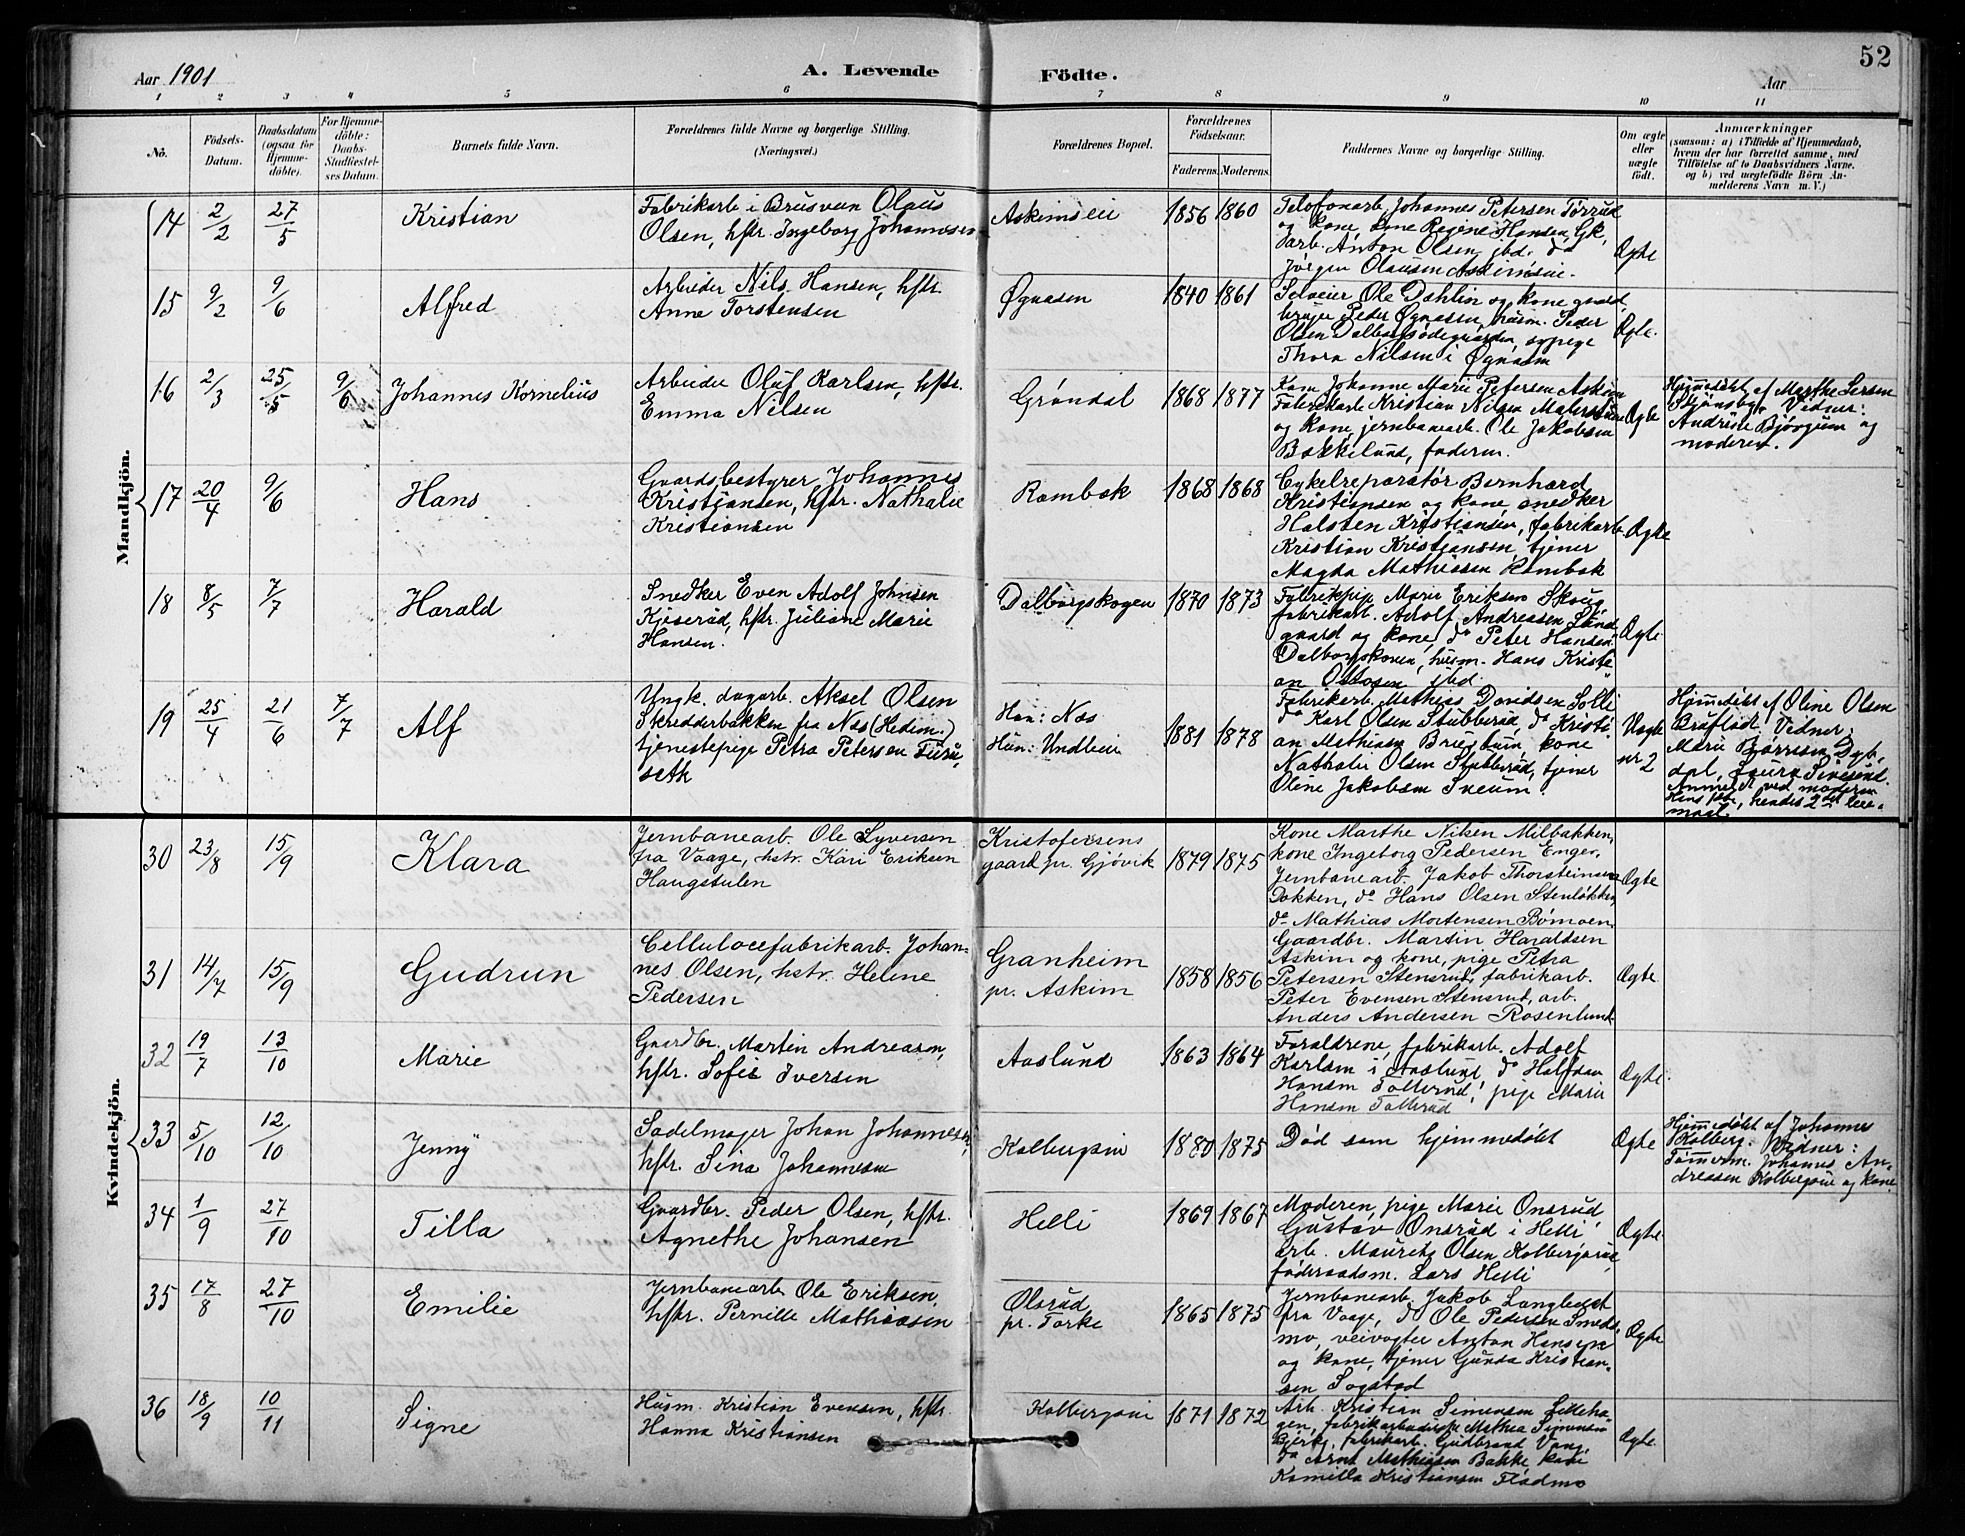 52
Aar 1901 A. Levende Födte. Aar
1 2 3 4 5 6 7 8 9 10 11
No.
Födsels-Datum.
Daabsdatum (ogsaa for Hjemme-döbte).
For Hjemme-döbte: Daabs-Stadfæstel-ses Datum.
Barnets fulde Navn.
Forældrenes fulde Navne og borgerlige Stilling. (Næringsvei.)
Forældrenes Bopæl.
Forældrenes Födselsaar.
Faderens. Moderens.
Faddernes Navne og borgerlige Stilling.
Om ægte eller uægte födt.
Anmærkninger
(saasom: a) i Tilfælde af Hjemmedaab,
hvem der har forrettet samme, med
Tilföielse af to Daabsvidners Navne,
og b) ved uægtefödte Börn An-
melderens Navn m. V.)
Mandkjön.
14 2/2 27/5 Kristian
Fabrikarb. i Brusveen Olaus
Olsen, hstr. Ingeborg Johannesen
Askimseie 1856 1860
Telefonarb. Johannes Petersen Törrud
og kone, kone Regine Hansen,
arb. Anton Olsen, ibd. do
Jörgen Olausen Askimseie.
Ægte
15 9/2 9/6 Alfred
Arbeider Nils Hansen, hstr.
Anne Torstensen
Øgnasen 1840 1861
Selveier Ole Dahlin og kone, gaard-
bruger Peder Øgnasen, husm. Peder
Olsen Dalborgsödegaarden, sypige
Thora Nilsen i Øgnasen
Ægte.
16 2/3 25/5 9/6 Johannes Kornelius
Arbeider Oluf Karlsen, hstr.
Emma Nilsen
Gröndal 1868 1877
Kone Johanne Marie Petersen Askim
Fabrikarb. Kristian Nilsen
og kone, jernbanearb. Ole Jakobsen
Bakkelund, faderen.
Ægte
Hjemmedöbt af Marthe Larsen
Vidner:
Andrine Björgum og
moderen.
17 20/4 9/6 Hans
Gaardsbestyrer Johannes
Kristiansen, hstr. Nathalie
Kristiansen
Rambæk 1868 1868
Cykelreparatör Bernhard
Kristiansen og kone, snedker
Halsten Kristiansen, fabrikarb.
Kristian Kristiansen, tjener
Magda Mathissen Rambæk
Ægte
18 8/5 7/7 Harald
Snedker Even Adolf Johnsen
Kjöserud, hstr. Juliane Marie
Hansen.
Dalborgskogen 1870 1873
Fabrikpige Marie Eriksen Skoug,
fabrikarb. Adolf Andreassen Sund-
gaard og kone, do Peter Hansen
Dalborgskoven, husm. Hans Kristi-
an Ottosen, ibd.
Ægte
19 25/4 21/6 7/7 Alf
Ungk. dagarb. Aksel Olsen
Skredderbakken fra Næs (Hedem.)
tjenestepige Petra Petersen Furu-
seth
Han: Næs
Hun: Undheim
1881 1878
Fabrikarb. Mathias Davidsen Solli
do Karl Olsen Stubberud, do Kristi-
an Mathisen Brusbum, kone
Nathalie Olsen Stubberud, tjener
Oline Jakobsen Sveum.
Uægte
nr 2
Hjemmedöbt af Oline Olsen
Vidner:
Marie
Anmeldt ved moderen
Hans 1ste, hendes 2det leie-
maal.
Kvindekjön.
30 23/8 15/9 Klara
Jernbanearb. Ole Syversen
fra Vaage, hstr. Kari Eriksen
Haugstulen
Kristofersens
gaard pr. Gjövik
1879 1875
Kone Marthe Nilsen Milbakken,
kone Ingeborg Pedersen Enger,
Jernbanearb. Jakob Thorsteinsen
Dokken, do Hans Olsen Stenlökken,
do Mathias Mortensen Bömoen.
Ægte
31 14/7 15/9 Gudrun
Cellulocefabrikarb. Johan-
nes Olsen, hstr. Helene
Pedersen
Granheim
pr. Askim
1858 1856
Gaardbr. Martin Haraldsen
Askim og kone, pige Petra
Petersen Stensrud, fabrikarb.
Peter Evensen Stensrud, arb.
Anders Andersen Rosenlund.
Ægte.
32 19/7 13/10 Marie
Gaardbr. Martin Andreasen,
hstr. Sofie Iversen
Aaslund 1863 1864
Forældrene, fabrikarb. Adolf
Karlsen i Aaslund, do Halfdan
Hansen Tollerud, pige Marie
Hansen Tollerud
Ægte.
33 5/10 12/10 Jenny
Sadelmager Johan Johannesen,
hstr. Sina Johannesen
Kolbergseie 1880 1875
Död som hjemmedöbt
Ægte
Hjemmedöbt af Johannes
Kolberg. Vidner:
Tömmerm. Johannes An-
dreasen Kolbergseie og kone.
34 1/9 27/10 Tilla
Gaardbr. Peder Olsen, hstr.
Agnethe Johansen
Helli 1869 1867
Moderen, pige Marie Onsrud,
Gustav Onsrud i Helli
arb. Mauritz Olsen Kolbergseie,
föderaadsm. Lars Helli
Ægte.
35 17/8 27/10 Emilie
Jernbanearb. Ole Eriksen,
hstr. Pernille Mathiasen
Olsrud,
pr. Torke
1865 1875
Jernbanearb. Jakob
fra Vaage, do Ole Pedersen Smeds-
mo, veivogter Anton Hansen
og kone, tjener Gunda Kristian-
sen Sogstad
Ægte
36 18/9 10/11 Signe
Husm. Kristian Evensen, hstr.
Hanna Kristiansen
Kolbergseie 1871 1872
Arb. Kristian Simensen Lilleha-
gen, fabrikarbeiderske Mathea Simensen
Bjerke, fabrikarb. Gudbrand Vang,
do Arnt Mathiasen Bakke, kone
Kamilla Kristiansen Fladmo
Ægte.